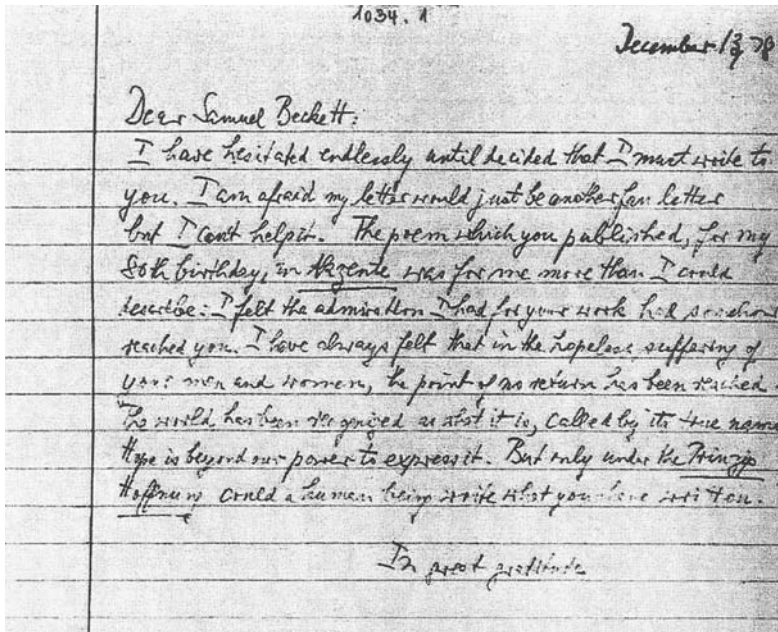 1034. 1
December 13, 78
Dear Samuel Beckett:
I have hesitated endlessly until decided that I must write to
you. I am afraid my letter would just be another fan letter
but I can't help it. The poem which you published, for my
80th birthday, in Akzente was for me more than I could
describe: I felt the admiration I had for your work had somehow
reached you. I have always felt that in the hopeless suffering of
your men and women, the point of no return has been reached.
The world has been recognized as what it is, called by its true name.
Hope is beyond our power to express it. But only under the Prinzip
Hoffnung could a human being write what you have written.
In great gratitude